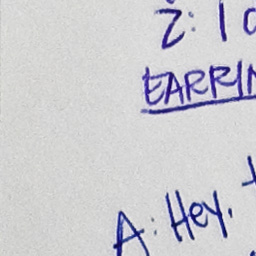 2: I
EARRIN
A: Hey.